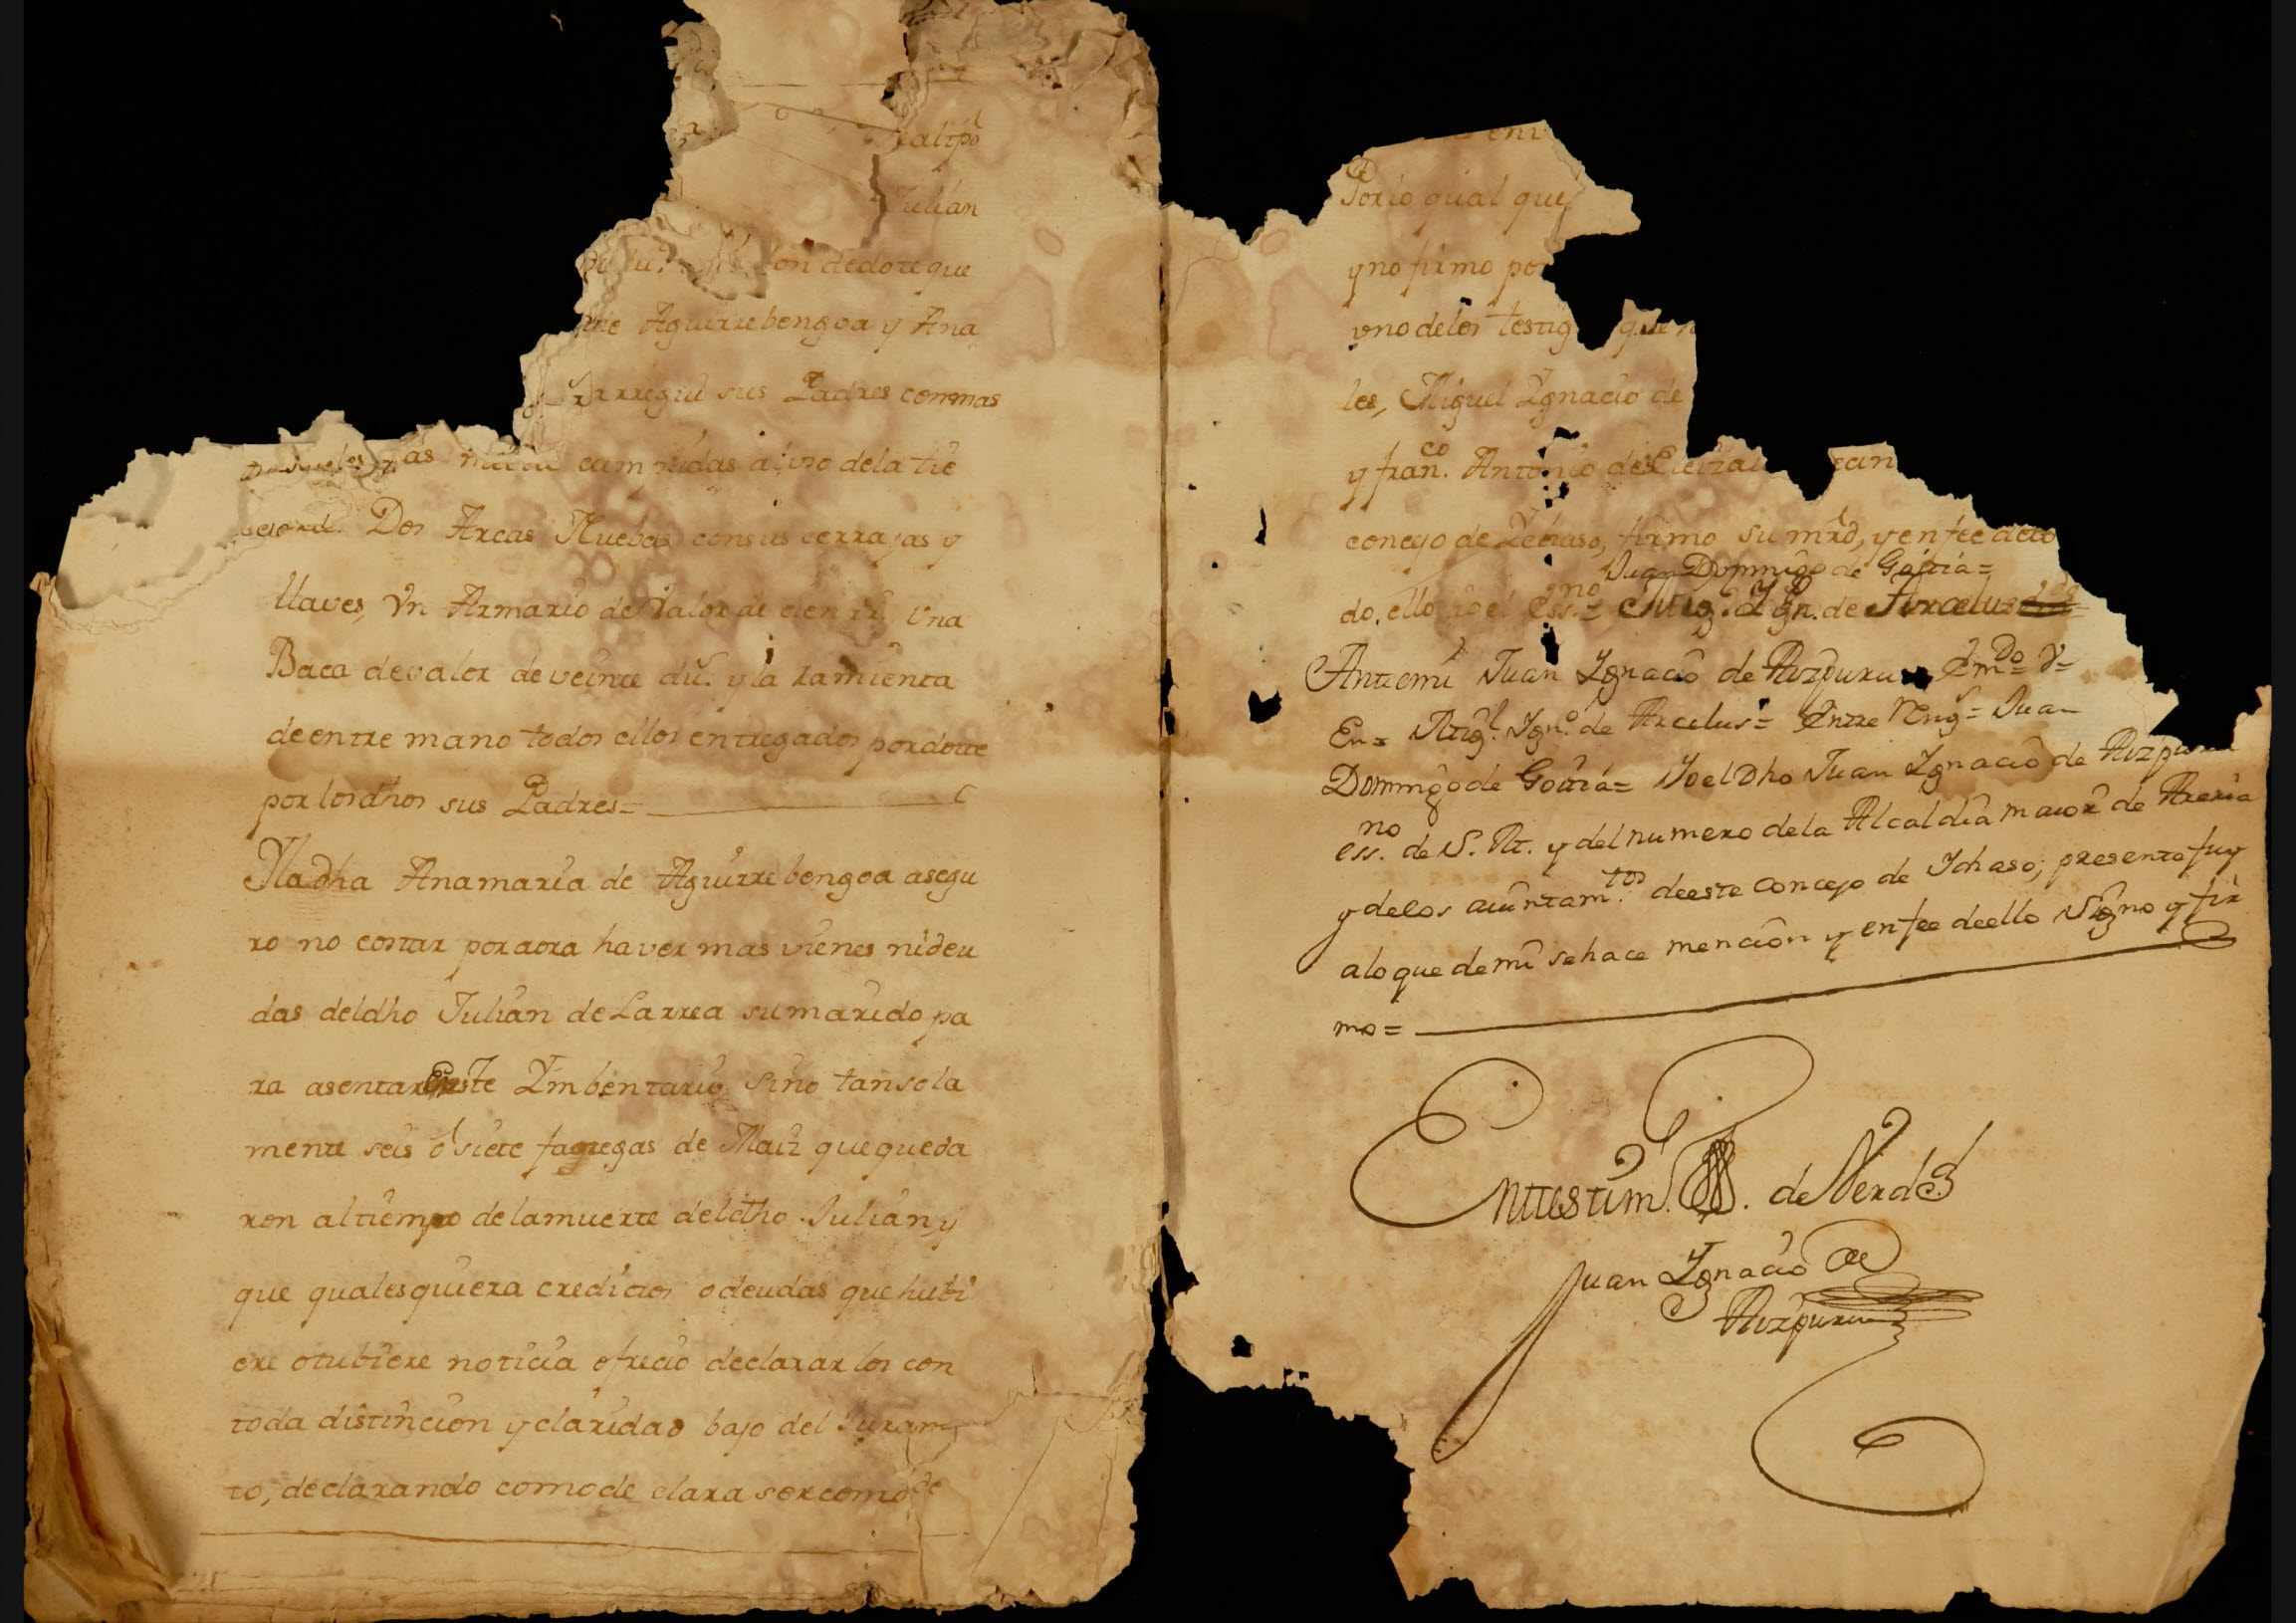 Julian
on dedote que
Aguirrebengoa y Ana
sus Padres conmas
cumplidas a uso dela tie
Dos Arcas Nuebas consus cerrajas y
llaves, Vn Armario de Valor de cien rs, Vna
Baca devalor de veinte dus. y la ramienta
de entre mano todos ellos entregados pordotte
por losdhos sus Padres=
Yladha Anamaria de Aguirrebengoa asegu
ro no costar poraora haver mas vienes nideu
das deldho Julian deLarrea sumarido pa
ra asentar Eneste Ymbentario sino tansola
mente seis o siete fanegas de Maiz quequeda
ron altiempo delamuerte deldho Julian, y
que qualesquiera creditos odeudas que hubi
ere otubiere noticia ofrecio declararlos con
toda distincion y claridad bajo del Juram
to, declarando comode clara sercomo de
Porlo qual que
yno firmo por
vno delos testig
les, Miguel Ygnacio de
y franco. Antonio de
concejo de firmo sumrd, y en fee deto
Juan Domingo de Goitia=
do, ello yo el essno= Mig.l Ygn. de Arcelus
Antemi Juan Ygnacio de Aizpuru= Emdo= V=
En= Mig.l Ygn.o de Arcelus= Entre Rengs= Juan
Domingo de Goitia= Yoeldho Juan Ygnacio de Aizpuru
essno. de S. M. y del numero dela Alcaldia maior de Areria
y delos aiuntamtos. deeste concejo de Ichaso, presente fuy
alo que demi sehace mencion y enfee deello Signo y fir
mo=
Enttestim.o de Verdad
Juan Ygnacio de
Aizpuru